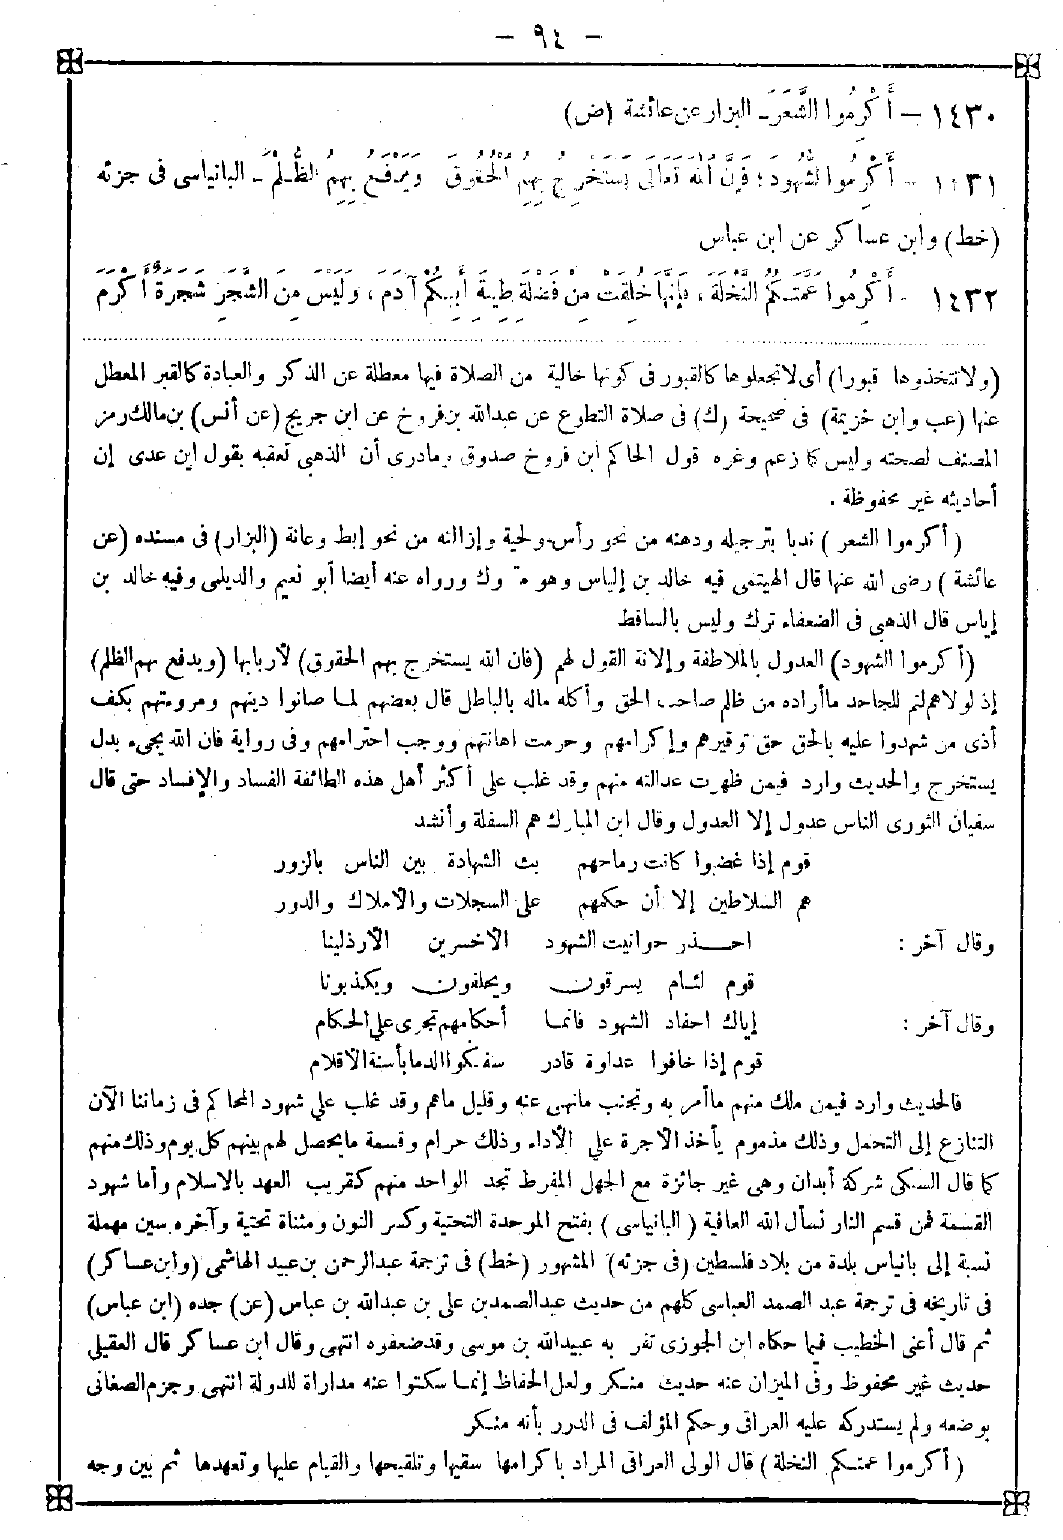 - ٩٤ -
١٤٣٠ - أَكْرِمُوا الشَّعَرَ - البزار عن عائشة (ض)
١٤٣١ - أَكْرِمُوا الشُّهُودَ؛ فَإِنَّ اللهَ تَعَالَى يَسْتَخْرِجُ بِهِمُ الْحُقُوقَ وَيَدْفَعُ بِهِمُ الظُّلْمَ - البانياسى فى جزئه
(خط) وابن عساكر عن ابن عباس
١٤٣٢ - أَكْرِمُوا عَمَّتَكُمُ النَّخْلَةَ، فَإِنَّهَا خُلِقَتْ مِنْ فَضْلَةِ طِينَةِ أَبِيكُمْ آدَمَ، وَلَيْسَ مِنَ الشَّجَرِ شَجَرَةٌ أَكْرَمَ
(ولا تتخذوها قبورا) أى لا تجعلوها كالقبور فى كونها خالية من الصلاة فيها معطلة عن الذكر والعبادة كالقبر المعطل
عنها (عب وابن خزيمة) فى صحيحة (ك) فى صلاة التطوع عن عبدالله بن فروخ عن ابن جريج (عن أنس) بن مالك رمز
المصنف لصحته وليس كما زعم وغره قول الحاكم ابن فروخ صدوق ومادرى أن الذهبى تعقبه بقول ابن عدى إن
أحاديثه غير محفوظة .
(أكرموا الشعر) ندبا بترجيله ودهنه من نحو رأس ولحية وإزالته من نحو إبط وعانة (البزار) فى مسنده (عن
عائشة) رضى الله عنها قال الهيتمى فيه خالد بن إلياس وهو متروك ورواه عنه أيضا أبو نعيم والديلمى وفيه خالد بن
إياس قال الذهبى فى الضعفاء ترك وليس بالساقط
(أكرموا الشهود) العدول بالملاطفة وإلانة القول لهم (فان الله يستخرج بهم الحقوق) لأربابها (ويدفع بهم الظلم)
إذ لولاهم لتم للجاحد ماأراده من ظلم صاحب الحق وأكله ماله بالباطل قال بعضهم لما صانوا دينهم ومروءتهم بكف
أذى من شهدوا عليه بالحق حق توقيرهم وإكرامهم وحرمت اهانتهم ووجب احترامهم وفى رواية فان الله يجىء بدل
يستخرج والحديث وارد فيمن ظهرت عدالته منهم وقد غلب على أكثر أهل هذه الطائفة الفساد والإفساد حتى قال
سفيان الثورى الناس عدول إلا العدول وقال ابن المبارك هم السفلة وأنشد
قوم إذا غضبوا كانت رماحهم بث الشهادة بين الناس بالزور
هم السلاطين إلا أن حكمهم على السجلات والأملاك والدور
وقال آخر : احذر حوانيت الشهود الأخسرين الأرذلينا
قوم لئام يسرقون ويحلفون ويكذبونا
وقال آخر : إياك احفاد الشهود فانما أحكامهم تجرى على الحكام
قوم إذا خافوا عداوة قادر سفكوا الدما بأسنة الأقلام
فالحديث وارد فيمن ملك منهم ماأمر به وتجنب مانهى عنه وقليل ماهم وقد غلب على شهود المحاكم فى زماننا الآن
التنازع إلى التحمل وذلك مذموم يأخذ الأجرة على الأداء وذلك حرام وقسمة مايحصل لهم بينهم كل يوم وذلك منهم
كما قال السبكى شركة أبدان وهى غير جائزة مع الجهل المفرط تجد الواحد منهم كقريب العهد بالاسلام وأما شهود
القسمة فمن قسم النار نسأل الله العافية (البانياسى) بفتح الموحدة التحتية وكسر النون ومثناة تحتية وآخره سين مهملة
نسبة إلى بانياس بلدة من بلاد فلسطين (فى جزئه) المشهور (خط) فى ترجمة عبدالرحمن بن عبيد الهاشمى (وابن عساكر)
فى تاريخه فى ترجمة عبد الصمد العباسى كلهم من حديث عبدالصمد بن على بن عبدالله بن عباس (عن) جده (ابن عباس)
ثم قال أعنى الخطيب فيما حكاه ابن الجوزى تفر به عبيدالله بن موسى وقد ضعفوه انتهى وقال ابن عساكر قال العقيلى
حديث غير محفوظ وفى الميزان عنه حديث منكر ولعل الحفاظ إنما سكتوا عنه مداراة للدولة انتهى وجزم الصغانى
بوضعه ولم يستدركه عليه العراقى وحكم المؤلف فى الدرر بأنه منكر
(أكرموا عمتكم النخلة) قال الولى العراقى المراد باكرامها سقيها وتلقيحها والقيام عليها وتعهدها ثم بين وجه